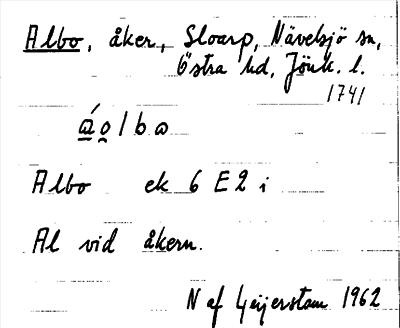 Albo, åker, Sloarp, Nävelsjö sn,
Östra hd, Jönk. l.
1741
á̲o̯lba
Albo ek 6 E 2 i
Al vid åkern.
N af Geijerstam 1962